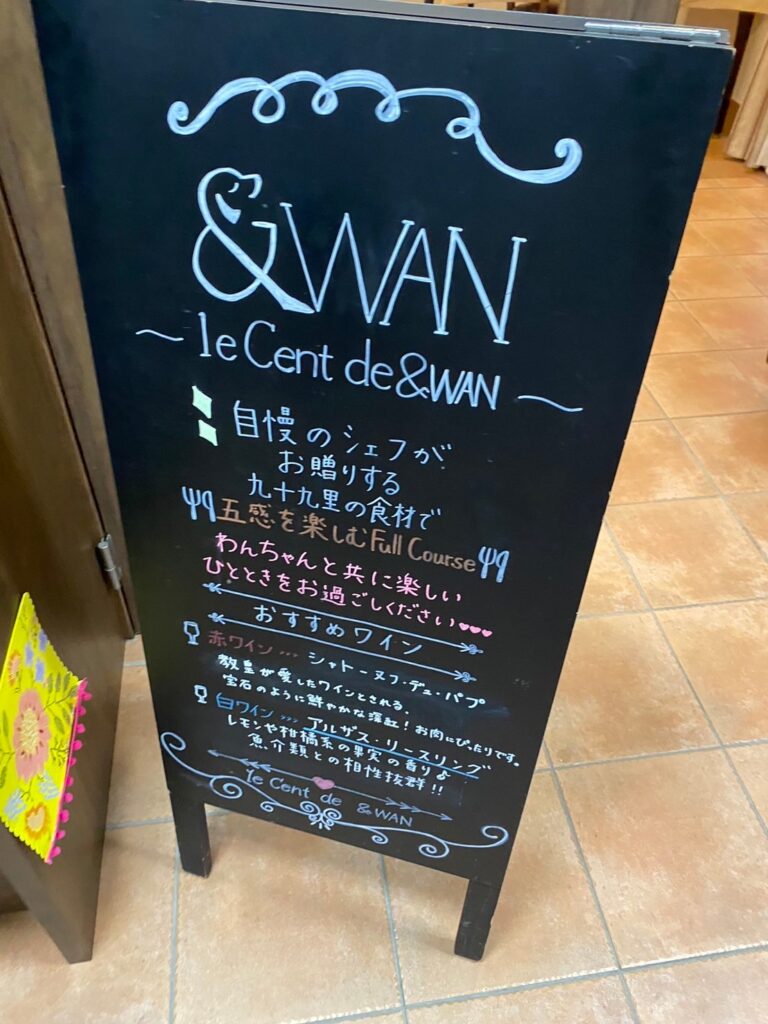 &WAN
～ le Cent de &WAN ～
自慢のシェフが
お贈りする
九十九里の食材で
五感を楽しむFull Course
わんちゃんと共に楽しい
ひとときをお過ごしください♥♥♥
おすすめワイン
赤ワイン … シャトーヌフ・デュ・パプ
教皇が愛したワインとされる。
宝石のように鮮やかな深紅！お肉にぴったりです。
白ワイン … アルザス・リースリング
レモンや柑橘系の果実の香り♪
魚介類との相性抜群!!
le Cent de &WAN